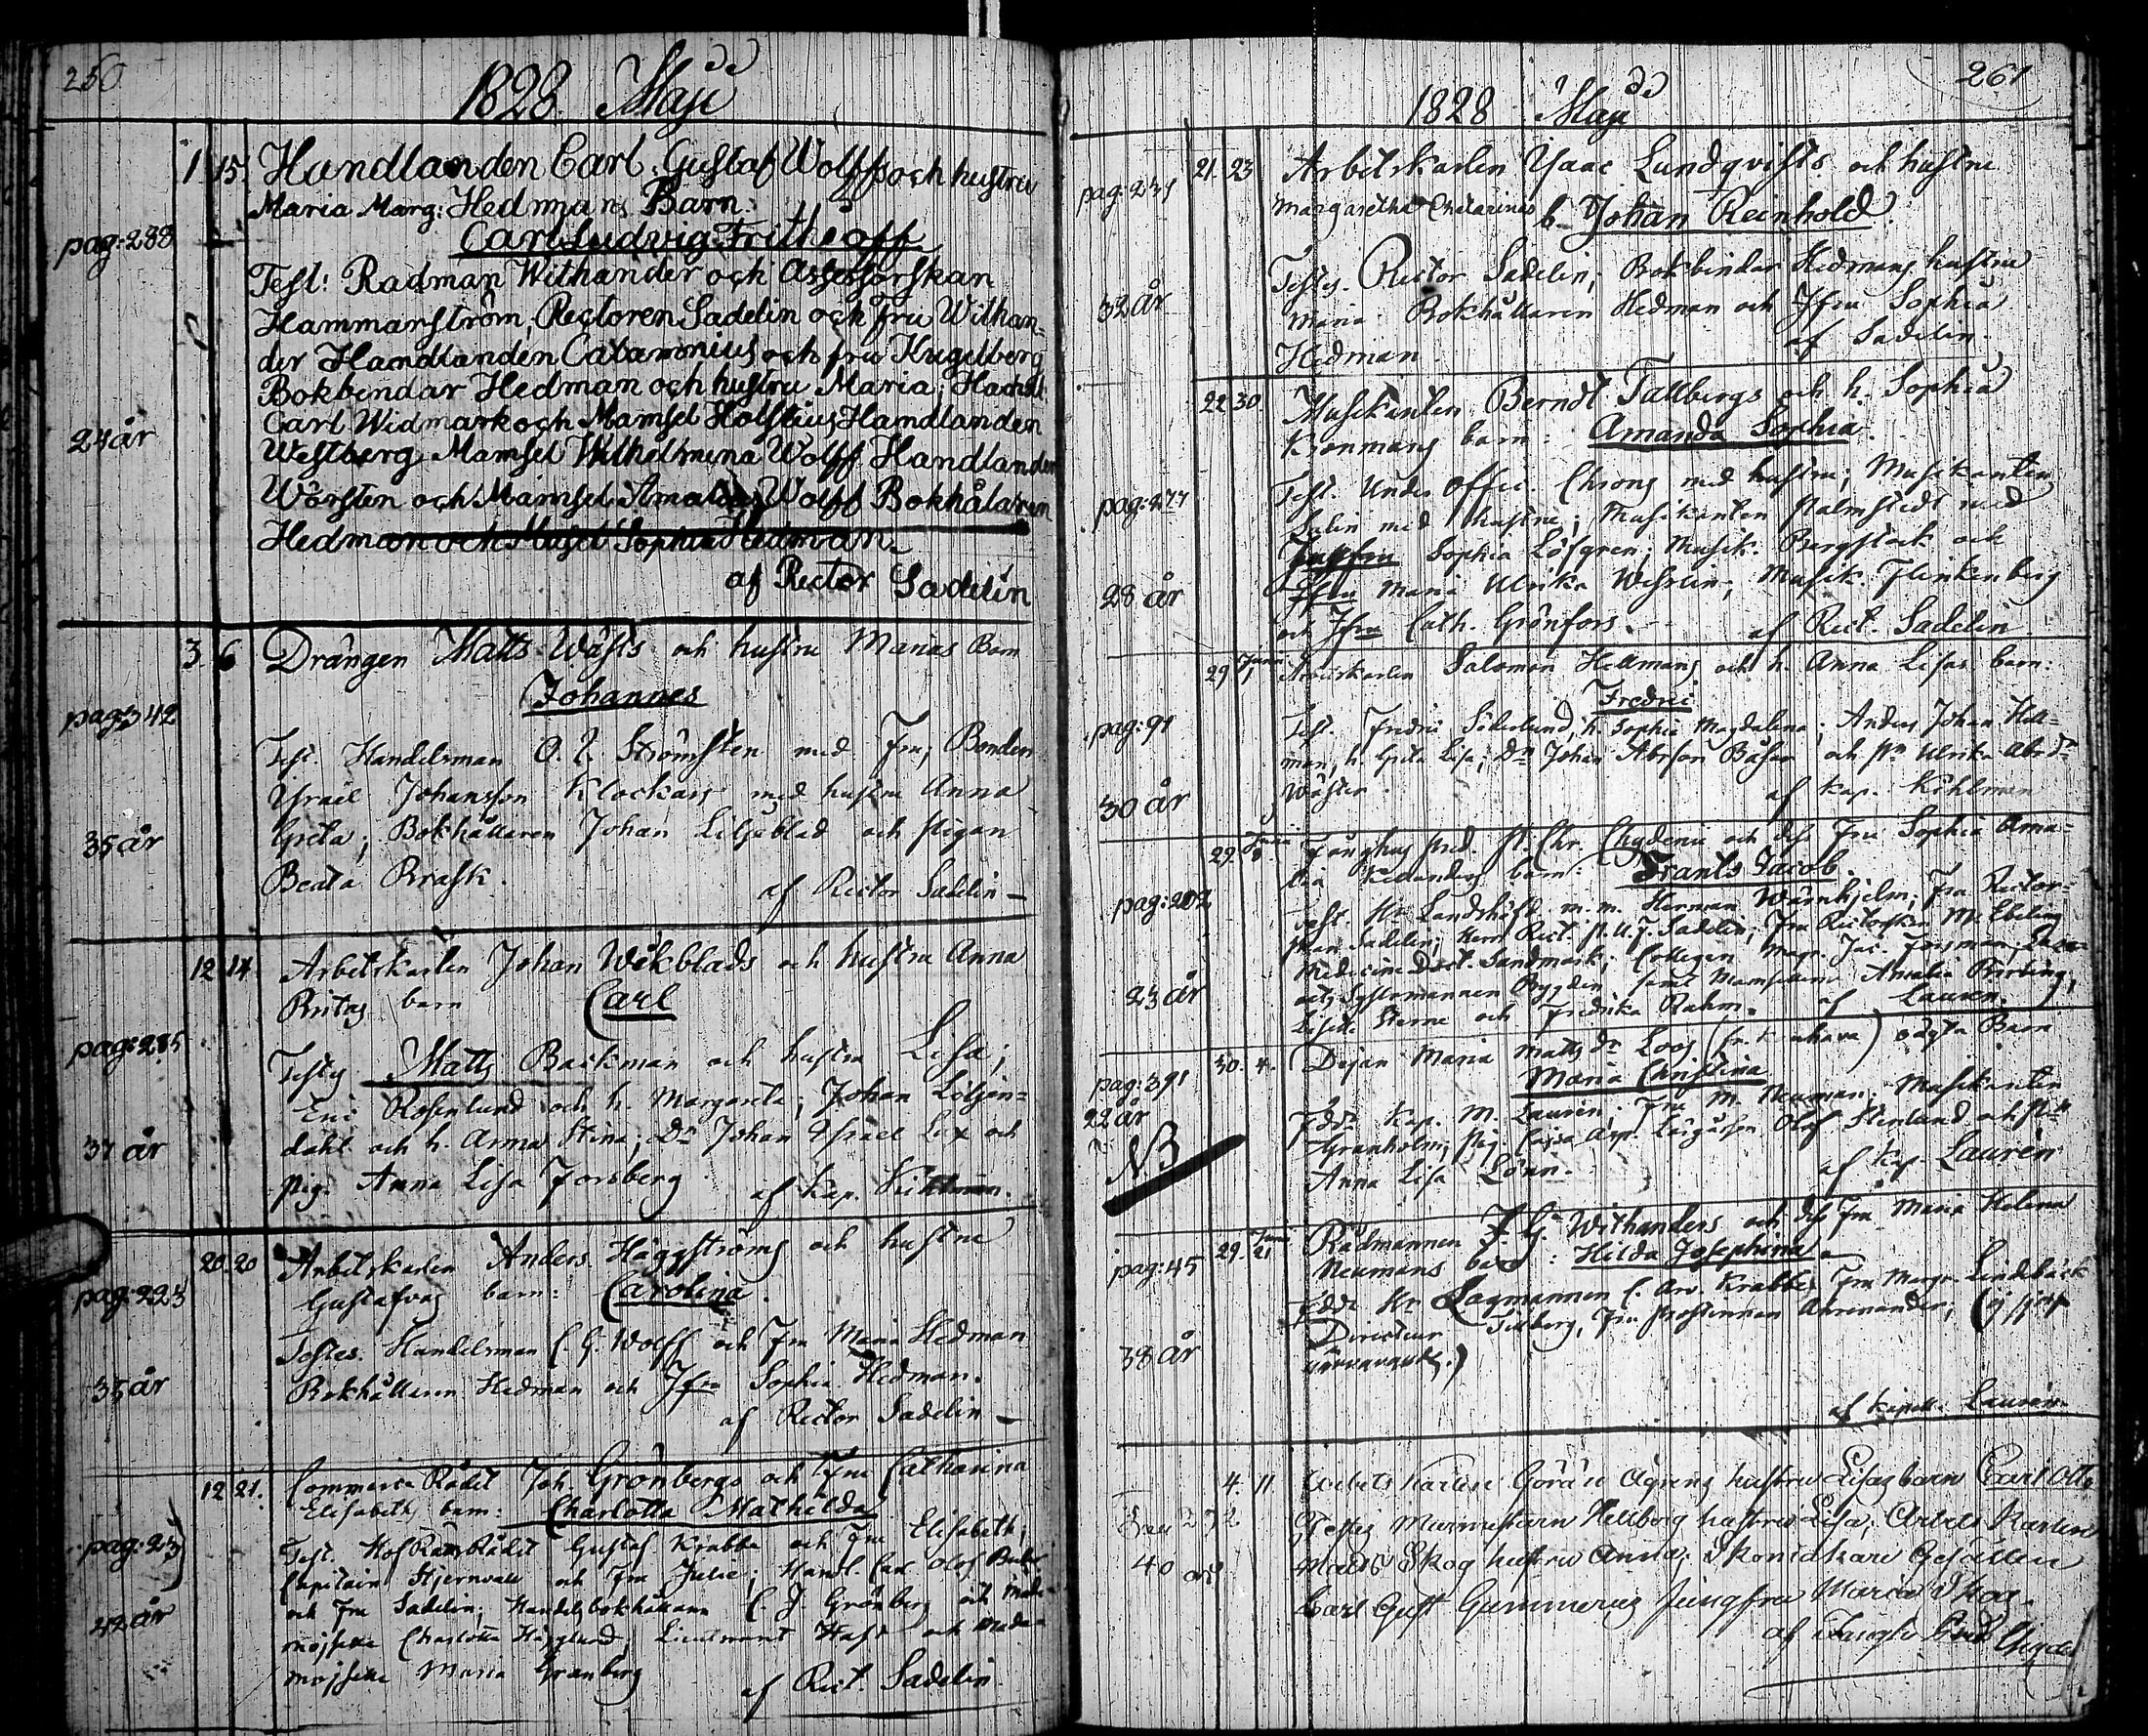 250
1828 Maji
1 15 Handlanden Carl Gustaf Wolffs och hustru
Maria Marg: Hedmans Barn
pag: 288
Carl Ludvig Frithioff
Test: Radman Withander och Assessorskan
Hammarström, Rectoren Sadelin och Fru Withan=
der Handlanden Calamnius och fru Kugelberg
Bokbindar Hedman och hustru Maria; Handl:
24 år
Carl Widmark och Mamsel Holstius Handlanden
Westberg Mamsel Wilhelmina Wolff Handlanden
Wörsten och Mamsel Amalia Wolff Bokhålaren
Hedman och Musel Sophia Hedman
af Rector Sadelin
3. 6 Drängen Matts Wästs och hustru Marias Barn
pag: 342
Johannes
Test. Handelsman O. L. Strömsten med Fru; Bonden
Ysrael Johansson Klockars med hustru Anna
35 år
Greta; Bokhållaren Johan Liljeblad och Pigan
Beata Brask. af Rector Sadelin
12 14 Arbetskarlen Johan Wekblads och hustru Anna
Britas barn Carl
pag: 285
Testes Matts Backman och hustru Lisa;
Eric Rosenlund och h. Margareta; Johan Löljen=
37 år
dahl och h. Anna Stina; Dr Johan Israel Lax och
Pig. Anna Lisa Forsberg af Kap. Kihlman.
20. 20 Arbetskarlen Anders Häggströms och hustru
pag: 223
Gustafvas barn: Carolina.
Testes. Handelsman C. G. Wolff och Fru Maria Hedman
35 år
Bokhållaren Hedman och Jfru Sophia Hedman.
af Rector Sadelin
12 21. Commerce Rådet Joh. Grönbergs och Fru Catharina
Elisabeths barn: Charlotta Mathilda
pag: 23
Test. HofRätsRådet Gustaf Krabbe och Fru Elisabeth;
Capitain Stjernvall och Fru Julie; Handl. Carl Olof
och Fru Sadelin; Handelsbokhållaren C. J. Grönberg och Made=
42 år
mojselle Charlotta Häggland; Lieutenant Hast och Made=
mojselle Maria Granberg af Rect. Sadelin.
261
1828 Maji
21. 23 Arbetskarlen Ysaac Lundqvists och hustru
pag: 231
Margaretha Chatarinas b. Johan Reinhold.
Testes. Rector Sadelin; Bokbindar Hedmans hustru
32 år
Maria Bokhållaren Hedman och Jfru Sophia
Hedman. af Sadelin.
22 30. Musikanten Berndt Tallbergs och h. Sophia
Kronmans barn: Amanda Sophia.
pag: 277
Test. Under Offic. Chrons med hustru; Musikanten
Salin med hustru; Musikanten Palmstedt med
Jungfru Sophia Löfgren; Musik. Bergstock och
28 år
Jfru Maria Ulrika Wesslin; Musik. Flinkenberg
och Jfru Cath. Grönfors. af Rect. Sadelin
29 Junii 1 Arbetskarlen Salomon Hellmans och h. Anna Lisas barn:
Fredric
pag: 91
Test. Fredric Söderlund, h. Sophia Magdalena; Anders Johan Hell=
man, h. Greta Lisa; Dn Johan Abrsson Båsar och Pn Ulrika Abrdr
30 år
Wäster. af Kap. Kihlman
29. Junii 8 Fånghus Pred. Chr. Chydenii och des Fru Sophia Ama=
lia Kellanders barn: Frants Jacob.
pag: 202
Test. Hr Landshöfd. m. m. Herman Wärnhjelm; Fru Rector=
skan Sadelin; Herr Rect. P. U. F. Sadelin; Fru Rectorskan M. Ebeling
Medicine Doct. Sandmark; Collegen Magr. Jac. Forsman;
23 år
och Sysslomannen Brygden samt Mamsellerna Amalia Berling,
Lisette Sterne och Fredrika Rahm. af Lauren.
30. 4. Pigan Maria Mattsdr Loos oägta Barn
pag: 391
Maria Christina
22 år
NB
Fddr. Kap. M. Lauren. Fru M. Neuman. Musikanten
Granholm, Pig. Caisa Olof Stenlund och Pn
Anna Lisa Lönn. af Kap. Laurén
29. Junii 21 Rådmannen F. G. Withanders och des Fru Maria Helena
pag: 45
Neumans barn: Hilda Josephina
Fddr Hr Lagmannen C. Arv. Krabbe, Fru Margr. Lindebäck
Directeur Tillberg, Fru Prostinnan Aurenander, (ej sjelf
38 år
närvarande.)
af Kapell. Laurén
4. 11 Arbets karlen Göran Ågrens hustrus Lisas barn Carl Otto
272
Testes Murmestarn Hellborg hustru Lisa; Arbets Karlen
40 år
Matts Skog hustru Anna; Skomakare Gesällen
Carl Gust Gummerus Jungfru Maria Skog.
af Fangh. Pred Chyde